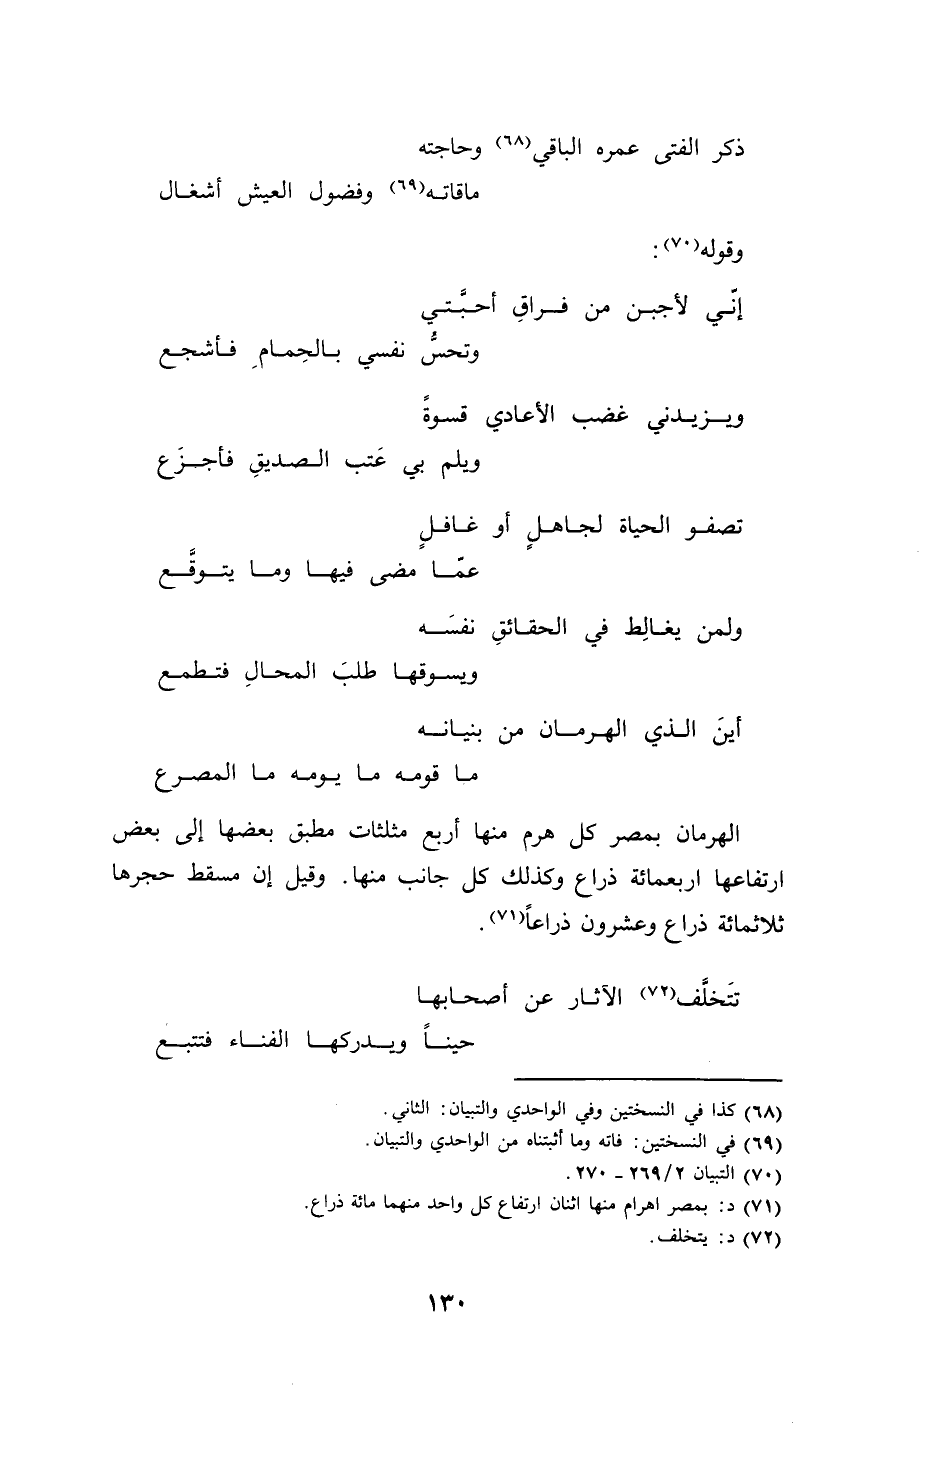 ذكر الفتى عمره الباقي(٦٨) وحاجته
ماقاته(٦٩) وفضول العيش أشغال
وقوله(٧٠):
إنّي لأجبن من فراقِ أحبَّتي
وتحسُّ نفسي بالحِمامِ فأشجع
ويزيدني غضب الأعادي قسوةً
ويلم بي عَتب الصديقِ فأجزَع
تصفو الحياة لجاهلٍ أو غافلٍ
عمّا مضى فيها وما يتوقَّع
ولمن يغالِط في الحقائقِ نفسَه
ويسوقها طلبَ المحالِ فتطمع
أينَ الذي الهرمان من بنيانه
ما قومه ما يومه ما المصرع
الهرمان بمصر كل هرم منها أربع مثلثات مطبق بعضها إلى بعض
ارتفاعها اربعمائة ذراع وكذلك كل جانب منها. وقيل إن مسقط حجرها
ثلاثمائة ذراع وعشرون ذراعاً(٧١).
تَتَخلَّف(٧٢) الآثار عن أصحابها
حيناً ويدركها الفناء فتتبع
(٦٨) كذا في النسختين وفي الواحدي والتبيان: الثاني.
(٦٩) في النسختين: فاته وما أثبتناه من الواحدي والتبيان.
(٧٠) التبيان ٢/ ٢٦٩ ـ ٢٧٠.
(٧١) د: بمصر اهرام منها اثنان ارتفاع كل واحد منهما مائة ذراع.
(٧٢) د: يتخلف.
١٣٠